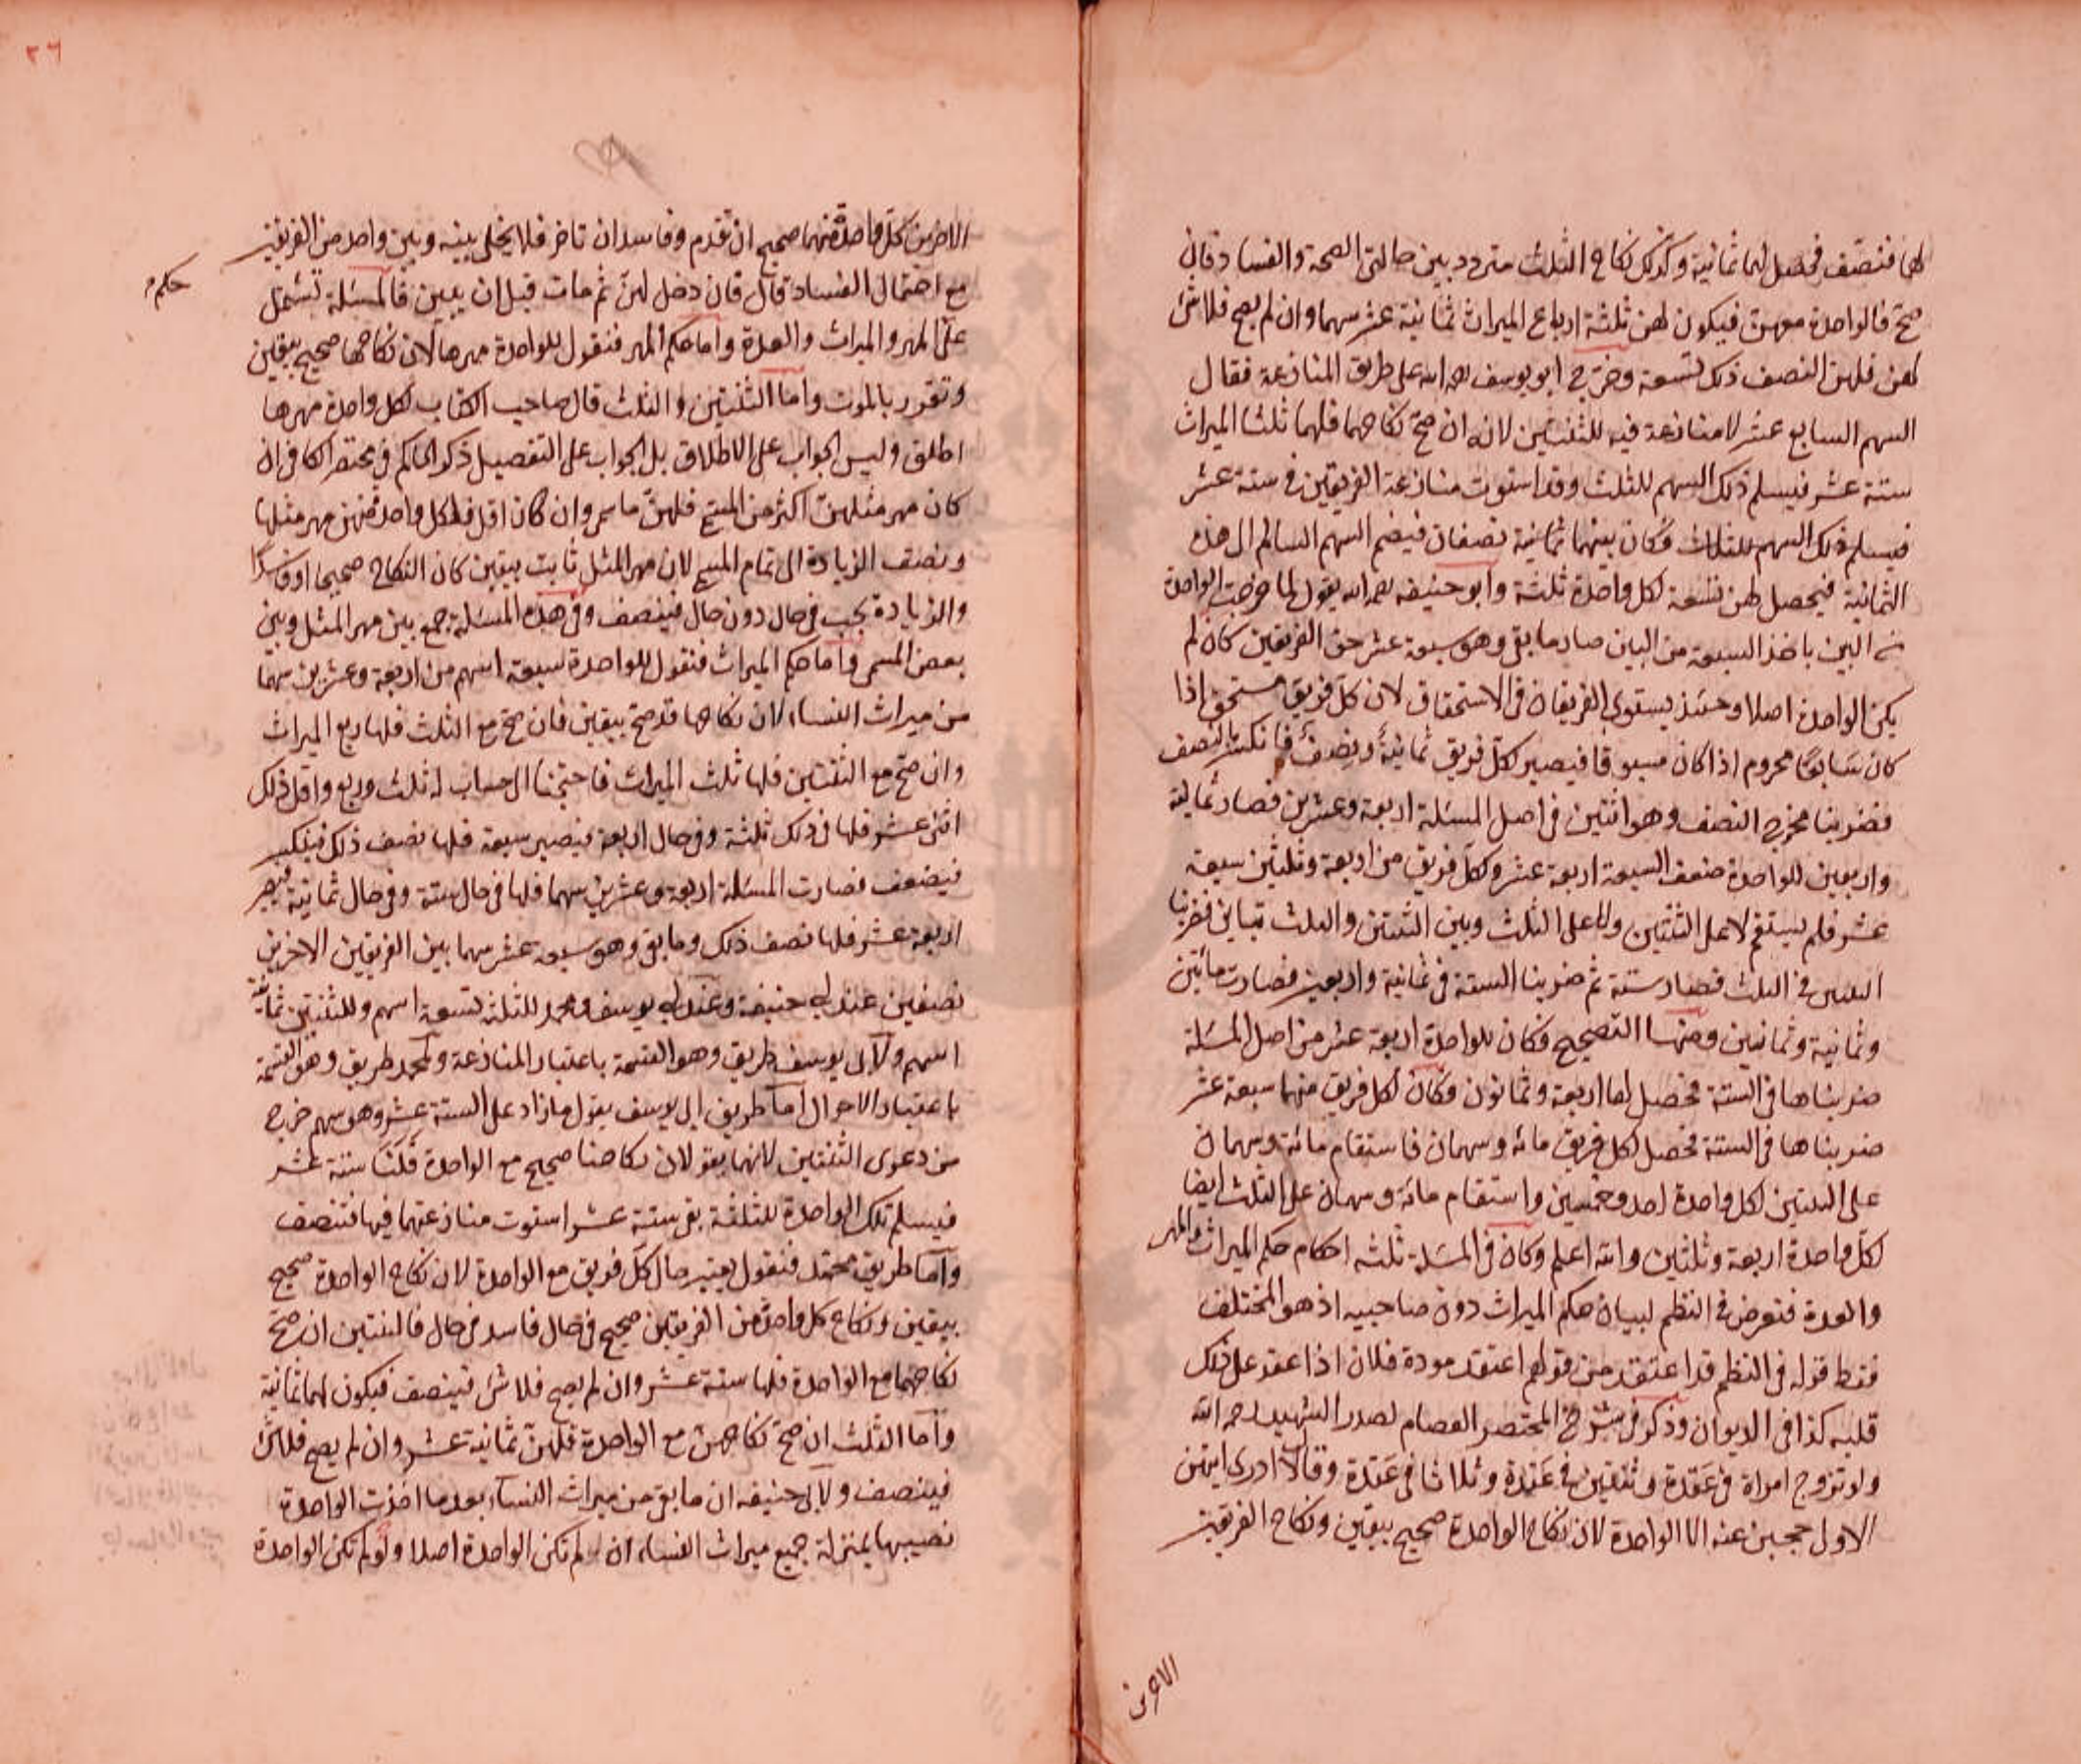 لهما فتنصّف فحصل لهما ثمانية وكذلك نكاح الثلث متردد بين حالتى الصحة والفساد فان
صحّ فالواحدة معهن فيكون لهن ثلثة ارباع الميراث ثمانية عشر سهما وان لم يصح فلا شئ
لهن فلهن النصف ذلك تسعة وخرّج ابو يوسف رحمه الله على طريق المنازعة فقال
السهم السابع عشر لا منازعة فيه للثنتين لانه ان صحّ نكاحهما فلهما ثلثا الميراث
ستة عشر فيسلم ذلك السهم للثلث وقد استوت منازعة الفريقين فى ستة عشر
فيسلم ذلك السهم للثلاث فكان بينهما ثمانية نصفان فيضم السهم السالم الى هذه
الثمانية فيحصل لهن تسعة لكل واحدة ثلثة وابو حنيفه رحمه الله يقول لما خرجت الواحدة
من البين باخذ السبعة من البين صار ما بقى وهو سبعة عشر حق الفريقين كان لم
يكن الواحدة اصلا وحينئذ يستوى الفريقان فى الاستحقاق لان كلّ فريق مستحق اذا
كان سَابقا محروم اذا كان مسبوقا فيصير لكلّ فريق ثمانيةٌ ونصفٌ فانكسر بالنصف
فضربنا مخرج النصف وهو اثنين فى اصل المسئلة اربعة وعشرين فصار ثمانية
واربعين للواحدة ضعف السبعة اربعة عشر ولكلّ فريق من اربعة وثلثين سبعة
عشر فلم يستقم لا على الثنتين ولا على الثلث وبين الثنتين والثلث تباين فضربنا
الثنتين فى الثلث فصار ستة ثم ضربنا الستة فى ثمانية واربعين فصارت مأتين
وثمانية وثمانين ومنها التصحيح فكان للواحدة اربعة عشر من اصل المسئلة
ضربناها فى الستة فحصل لها اربعة وثمانون وكان لكل فريق منهما سبعة عشر
ضربناها فى الستة فحصل لكل فريق مائة وسهمان فاستقام مائة وسهمان
على الثنتين لكل واحدة احد وخمسين واستقام مائة وسهمان على الثلث ايضا
لكلّ واحدة اربعة وثلثين والله اعلم وكان فى المسئلة ثلثه احكام حكم الميراث والمهر
والعدة فتعرض فى النظم لبيان حكم الميراث دون صاحبيه اذ هو المختلف
فقط قوله فى النظم قد اعتقد من قولهم اعتقد مودة فلان اذا عقد على ذلك
قلبه كذا فى الديوان وذكر فى شرح المختصر العصام لصدر الشهيد رحمه الله
ولو تزوج امراة فى عَقدة وثنتين فى عَقدة وثلاثا فى عَقدة وقال لا ادرى ايتهن
الاول حجبن عنه الا الواحدة لان نكاح الواحدة صحيح بيقين ونكاح الفريقين
الاخرين
٣٦
الاخرين كلّ واحدة منهما صحيح ان تقدم وفاسد ان تاخر فلا يخلى بينه وبين واحد من الفريقين
مع احتمال الفساد قال فان دخل لهنّ ثم مات قبل ان يبين فالمسئلة تشتمل
حكم
على المهر والميراث والعدة واما حكم المهر فنقول للواحدة مهرها لان نكاحها صحيح بيقين
وتقرر بالموت واما الثنتين والثلث قال صاحب الكتاب لكل واحدة مهرها
اطلق وليس الجواب على الاطلاق بل الجواب على التفصيل ذكر الحاكم فى مختصر الكافى ان
كان مهر مثلهنّ اكثر من المسمى فلهنّ ما سمى وان كان اقل فلكل واحدة منهن مهر مثلها
ونصف الزيادة الى تمام المسمى لان مهر المثل ثابت بيقين كان النكاح صحيحا او فاسدًا
والزيادة تجب فى حال دون حال فيتنصف وفى هذه المسئلة جمع بين مهر المثل وبين
بعض المسمى واما حكم الميراث فنقول للواحدة سبعة اسهم من اربعة وعشرين سهما
من ميراث النساء لان نكاحها قد صحّ بيقين فان صحّ مع الثلث فلها ربع الميراث
وان صحّ مع الثنتين فلها ثلث الميراث فاحتجنا الى حساب له ثلث وربع واقل ذلك
اثنى عشر فلها فى ذلك ثلثة وفى حال اربعة فيصير سبعة فلها نصف ذلك فينكسر
فيضعف فصارت المسئلة اربعة وعشرين سهما فلها فى حال ستة وفى حال ثمانية فيصير
اربعة عشر فلها نصف ذلك وما بقى وهو سبعة عشر سهما بين الفريقين الاخرين
نصفين عند ابى حنيفة وعند ابى يوسف ومحمد للثلث تسعة اسهم وللثنتين ثمانية
اسهم ولابى يوسف طريق وهو القسمة باعتبار المنازعة ولمحمد طريق وهو القسمة
باعتبار الاحوال اما طريق ابى يوسف يقول ما زاد على الستة عشر وهو سهم خرج
من دعوى الثنتين لانهما يقولان نكاحنا صحيح مع الواحدة فلنا ستة عشر
فيسلم تلك الواحدة للثلثة بقى ستة عشر استوت منازعتهما فيها فتنصف
واما طريق محمّد فنقول يعتبر حال كلّ فريق مع الواحدة لان نكاح الواحدة صحيح
بيقين ونكاح كل واحدة من الفريقين صحيح فى حال فاسد فى حال فالثنتين ان صحّ
نكاحهما مع الواحدة فلهما ستة عشر وان لم يصح فلا شئ فينصف فيكون لهما ثمانية
واما الثلث ان صحّ نكاحهن مع الواحدة فلهنّ ثمانية عشر وان لم يصح فلا شئ
فينصف ولابى حنيفه ان ما بقى من ميراث النساء بعد ما اخذت الواحدة
نصيبها بمنزلة جميع ميراث النساء ان لم تكن الواحدة اصلا ولو لم تكن الواحدة